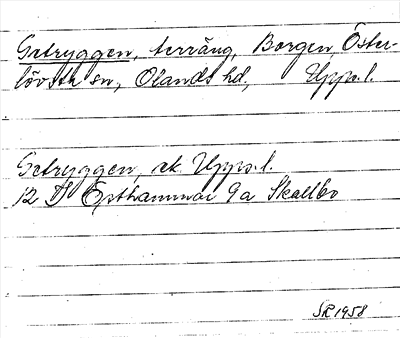 Getryggen, terräng, Borgen, Öster-
lövsta sn, Olands hd, Upps. l.
Getryggen, ek. Upps. l.
12 I Östhammar 9a Skallbo
SR 1958